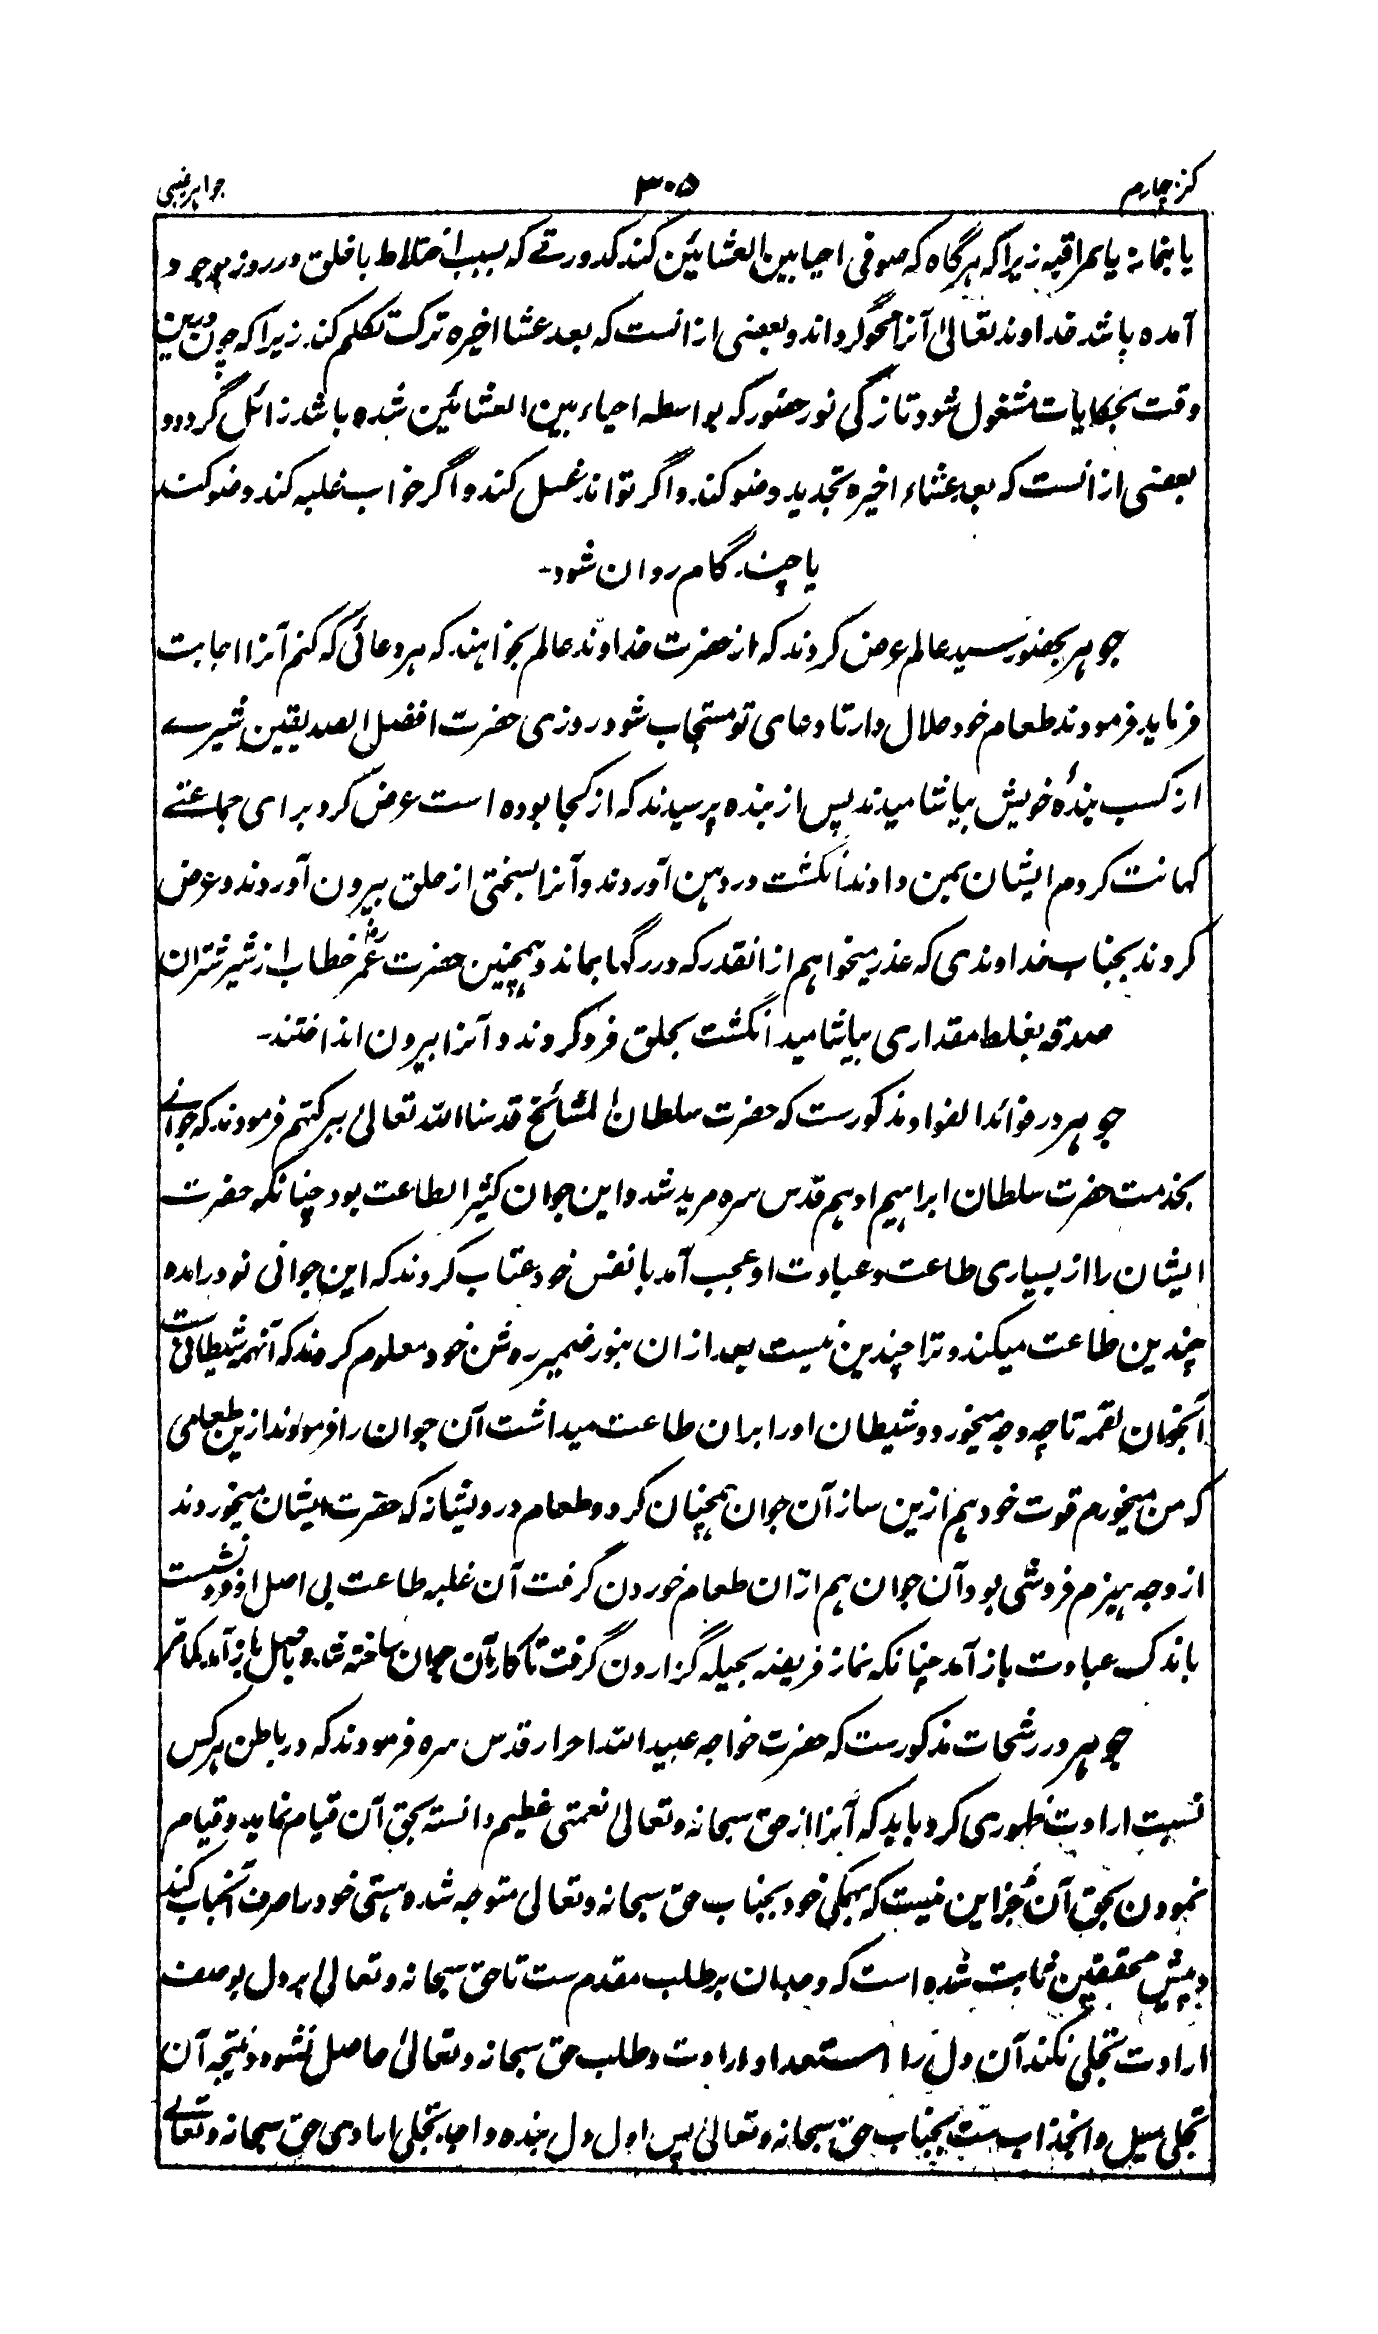 کنز چهارم ۳۰۵ جواهر غیبی
یا بنماز یا بمراقبه زیرا که هرگاه که صوفی احیا بین العشائین کند کدورتے که بسبب اختلاط با خلق در روز بوجود
آمده باشد خداوند تعالیٰ آنرا محو گرداند و بعضی از انست که بعد عشا اخیره ترک تکلم کند زیرا که چون درین
وقت بحکایات مشغول شود تازگی نور حضور که بواسطه احیاء بین العشائین شده باشد زائل گردد و
بعضی از انست که بعد عشاء اخیره تجدید وضو کند و اگر تواند غسل کند و اگر خواب غلبه کند وضو کند
یا چند گام روان شود۔
جوهر بحضور سید عالم عرض کردند که از حضرت خداوند عالم بخواهند که هر دعائی که کنم آنرا اجابت
فرماید فرمودند طعام خود حلال دار تا دعای تو مستجاب شود روزی حضرت افضل الصدیقین شیرے
از کسب بندهٔ خویش بیاشامیدند پس از بنده پرسیدند که از کجا بوده است عرض کرد برای جماعتے
کهانت کردم ایشان بمن دادند انگشت در دهن آوردند و آنرا بسختی از حلق بیرون آوردند و عرض
کردند بجناب خداوندی که عذر میخواهم از انقدر که در رگها بماند و همچنین حضرت عمر خطاب از شیر شتران
صدقه بغلط مقداری بیاشامید انگشت بحلق فرو کردند و آنرا بیرون انداختند۔
جوهر در فوائد الفواد مذکورست که حضرت سلطان المشائخ قدسنا الله تعالیٰ ببرکتهم فرمودند که جوانے
بخدمت حضرت سلطان ابراهیم ادهم قدس سره مرید شد و این جوان کثیر الطاعت بود چنانکه حضرت
ایشان را از بسیاری طاعت و عبادت او عجب آمد با نفس خود عتاب کردند که این جوانی نو درامده
چندین طاعت میکند و ترا چندین نیست بعد ازان بنور ضمیر روشن خود معلوم کردند که آنهمه شیطانی ست
آنجوان لقمه تا چه وجه میخورد و شیطان او را بران طاعت میداشت آن جوان را فرمودند ازین طعامی
که من میخورم قوت خود هم ازین ساز آن جوان همچنان کرد و طعام درویشانه که حضرت ایشان میخوردند
از وجه هیزم فروشی بود آن جوان هم ازان طعام خوردن گرفت آن غلبه طاعت بی اصل او فرو نشست
باندک عبادت باز آمد چنانکه نماز فریضه بحیله گزاردن گرفت تا کار آن جوان ساخته شد و باصل باز آمد
جوهر در رشحات مذکورست که حضرت خواجه عبید الله احرار قدس سره فرمودند که در باطن هر کس
نسبت ارادت ظهوری کرد باید که آنرا از حق سبحانه و تعالی نعمتی عظیم دانسته بحق آن قیام نماید و قیام
نمودن بحق آن جز این نیست که بهمگی خود بجناب حق سبحانه و تعالی متوجه شده هستی خود را صرف آنجناب کند
و پیش محققین ثابت شده است که وجدان بر طلب مقدم ست تا حق سبحانه و تعالیٰ بر دل بوصف
ارادت تجلی نکند آن دل را استعداد ارادت و طلب حق سبحانه و تعالیٰ حاصل نشود و نتیجه آن
تجلی میل و انجذاب ست بجناب حق سبحانه و تعالیٰ پس اول دل بنده واجد تجلی ارادی حق سبحانه و تعالے